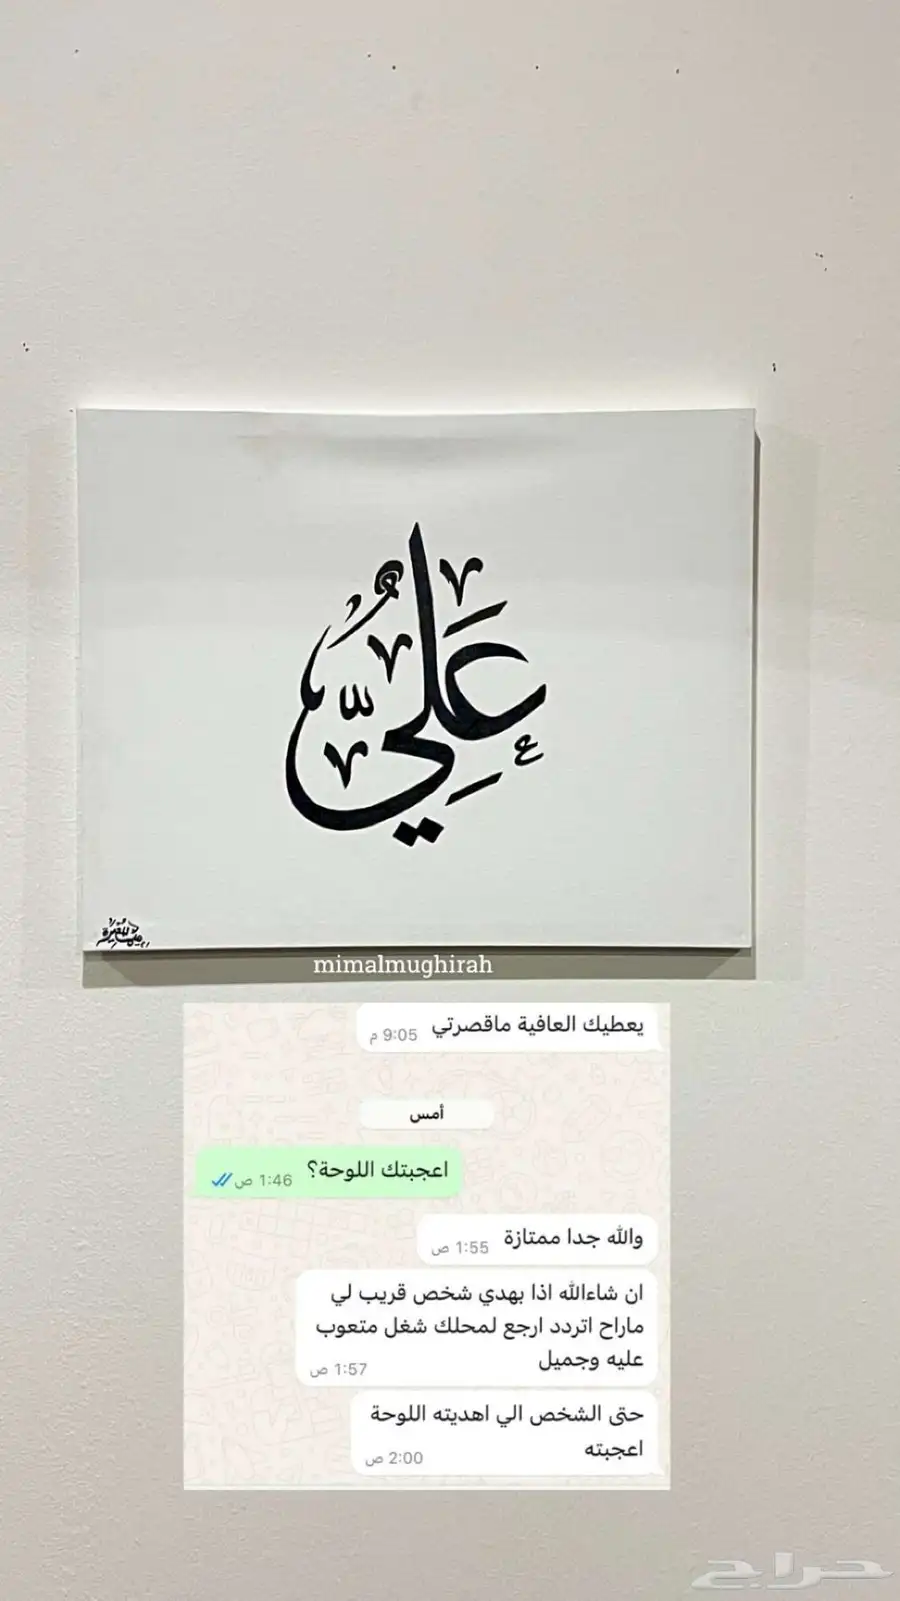 عَلِيٌّ
mimalmughirah
يعطيك العافية ماقصرتي
9:05 م
أمس
اعجبتك اللوحة؟
1:46 ص
والله جدا ممتازة
1:55 ص
ان شاءالله اذا بهدي شخص قريب لي
ماراح اتردد ارجع لمحلك شغل متعوب
عليه وجميل
1:57 ص
حتى الشخص الي اهديته اللوحة
اعجبته
2:00 ص
حراج